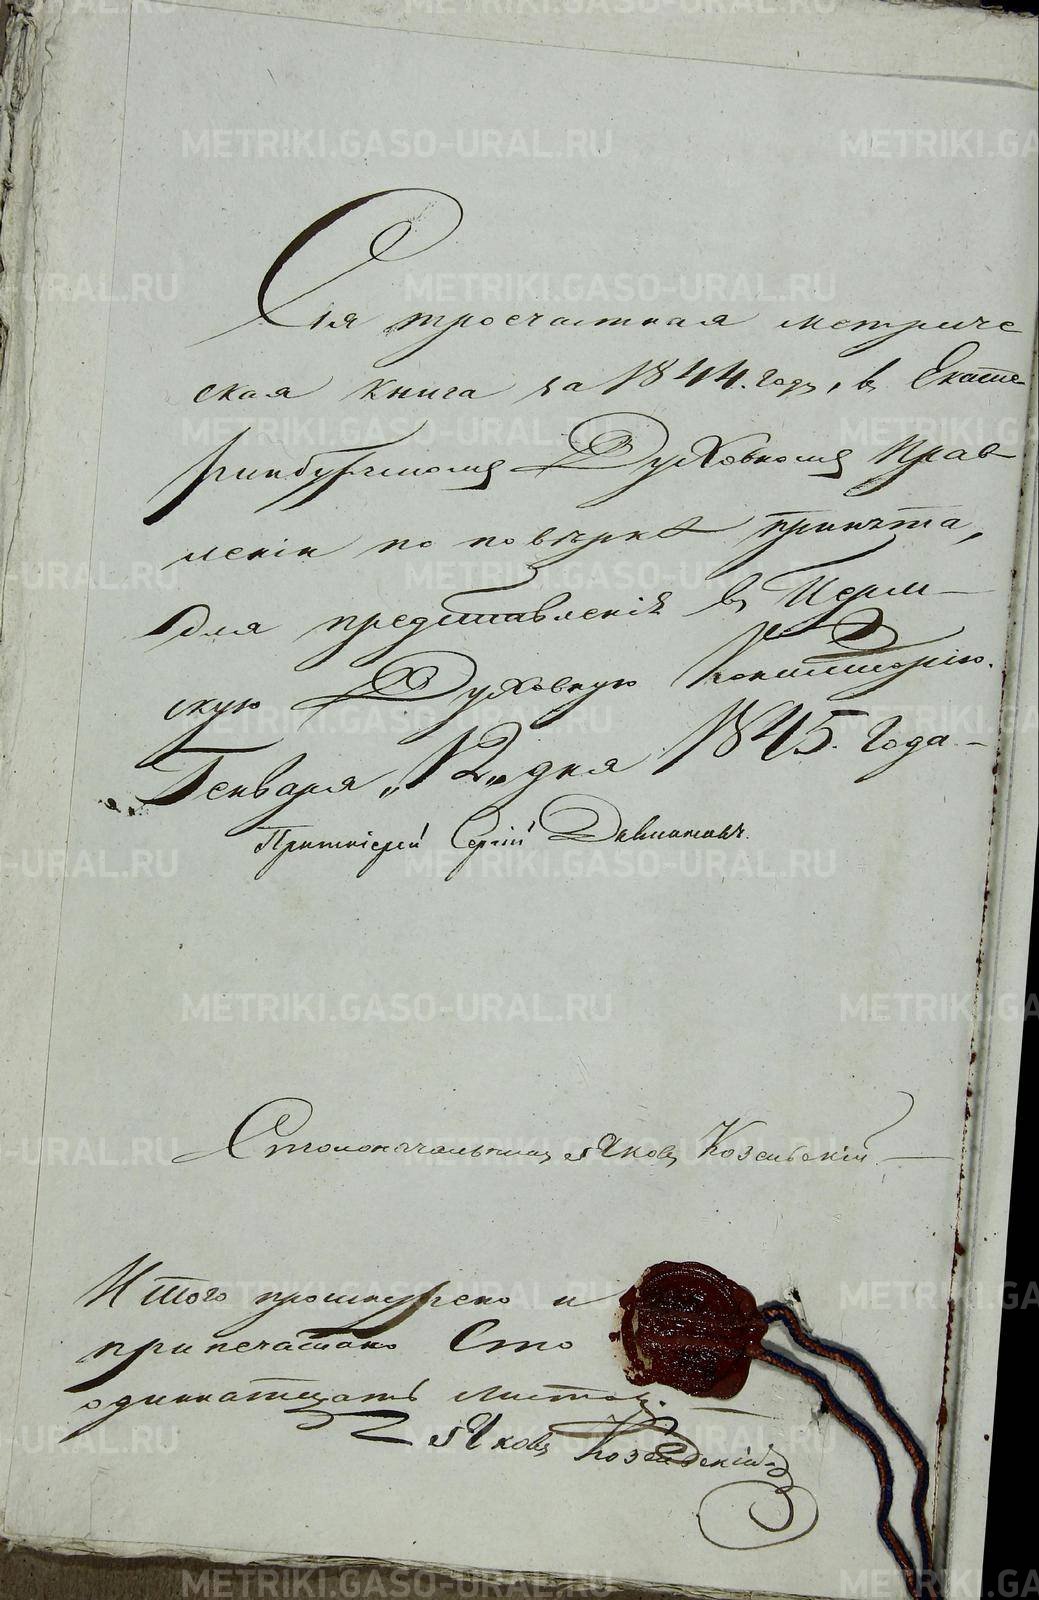 Сія троечастная метриче
ская книга за 1844. годъ, въ Екате
ринбургскомъ Духовномъ Прав
леніи по повѣркѣ принѣта,
для представленія въ Перм-
скую Духовную Консисторію.
Генваря „12„ дня 1845. Года.-
Протоіерей Сергій
Столоначальникъ Яковъ Козельскій.
Итого прошнурено и
припечатано Сто
одиннатцать листов.
Яковъ Козельскій
METRIKI.GASO-URAL.RU